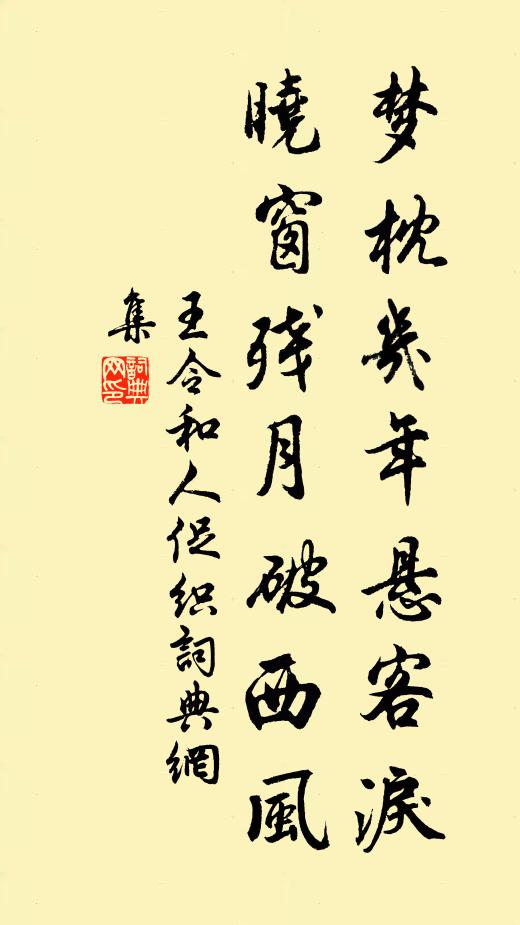 梦枕幾年悬客淚
曉窗残月破西風
王令和人促织詞典網
集
詞典网印